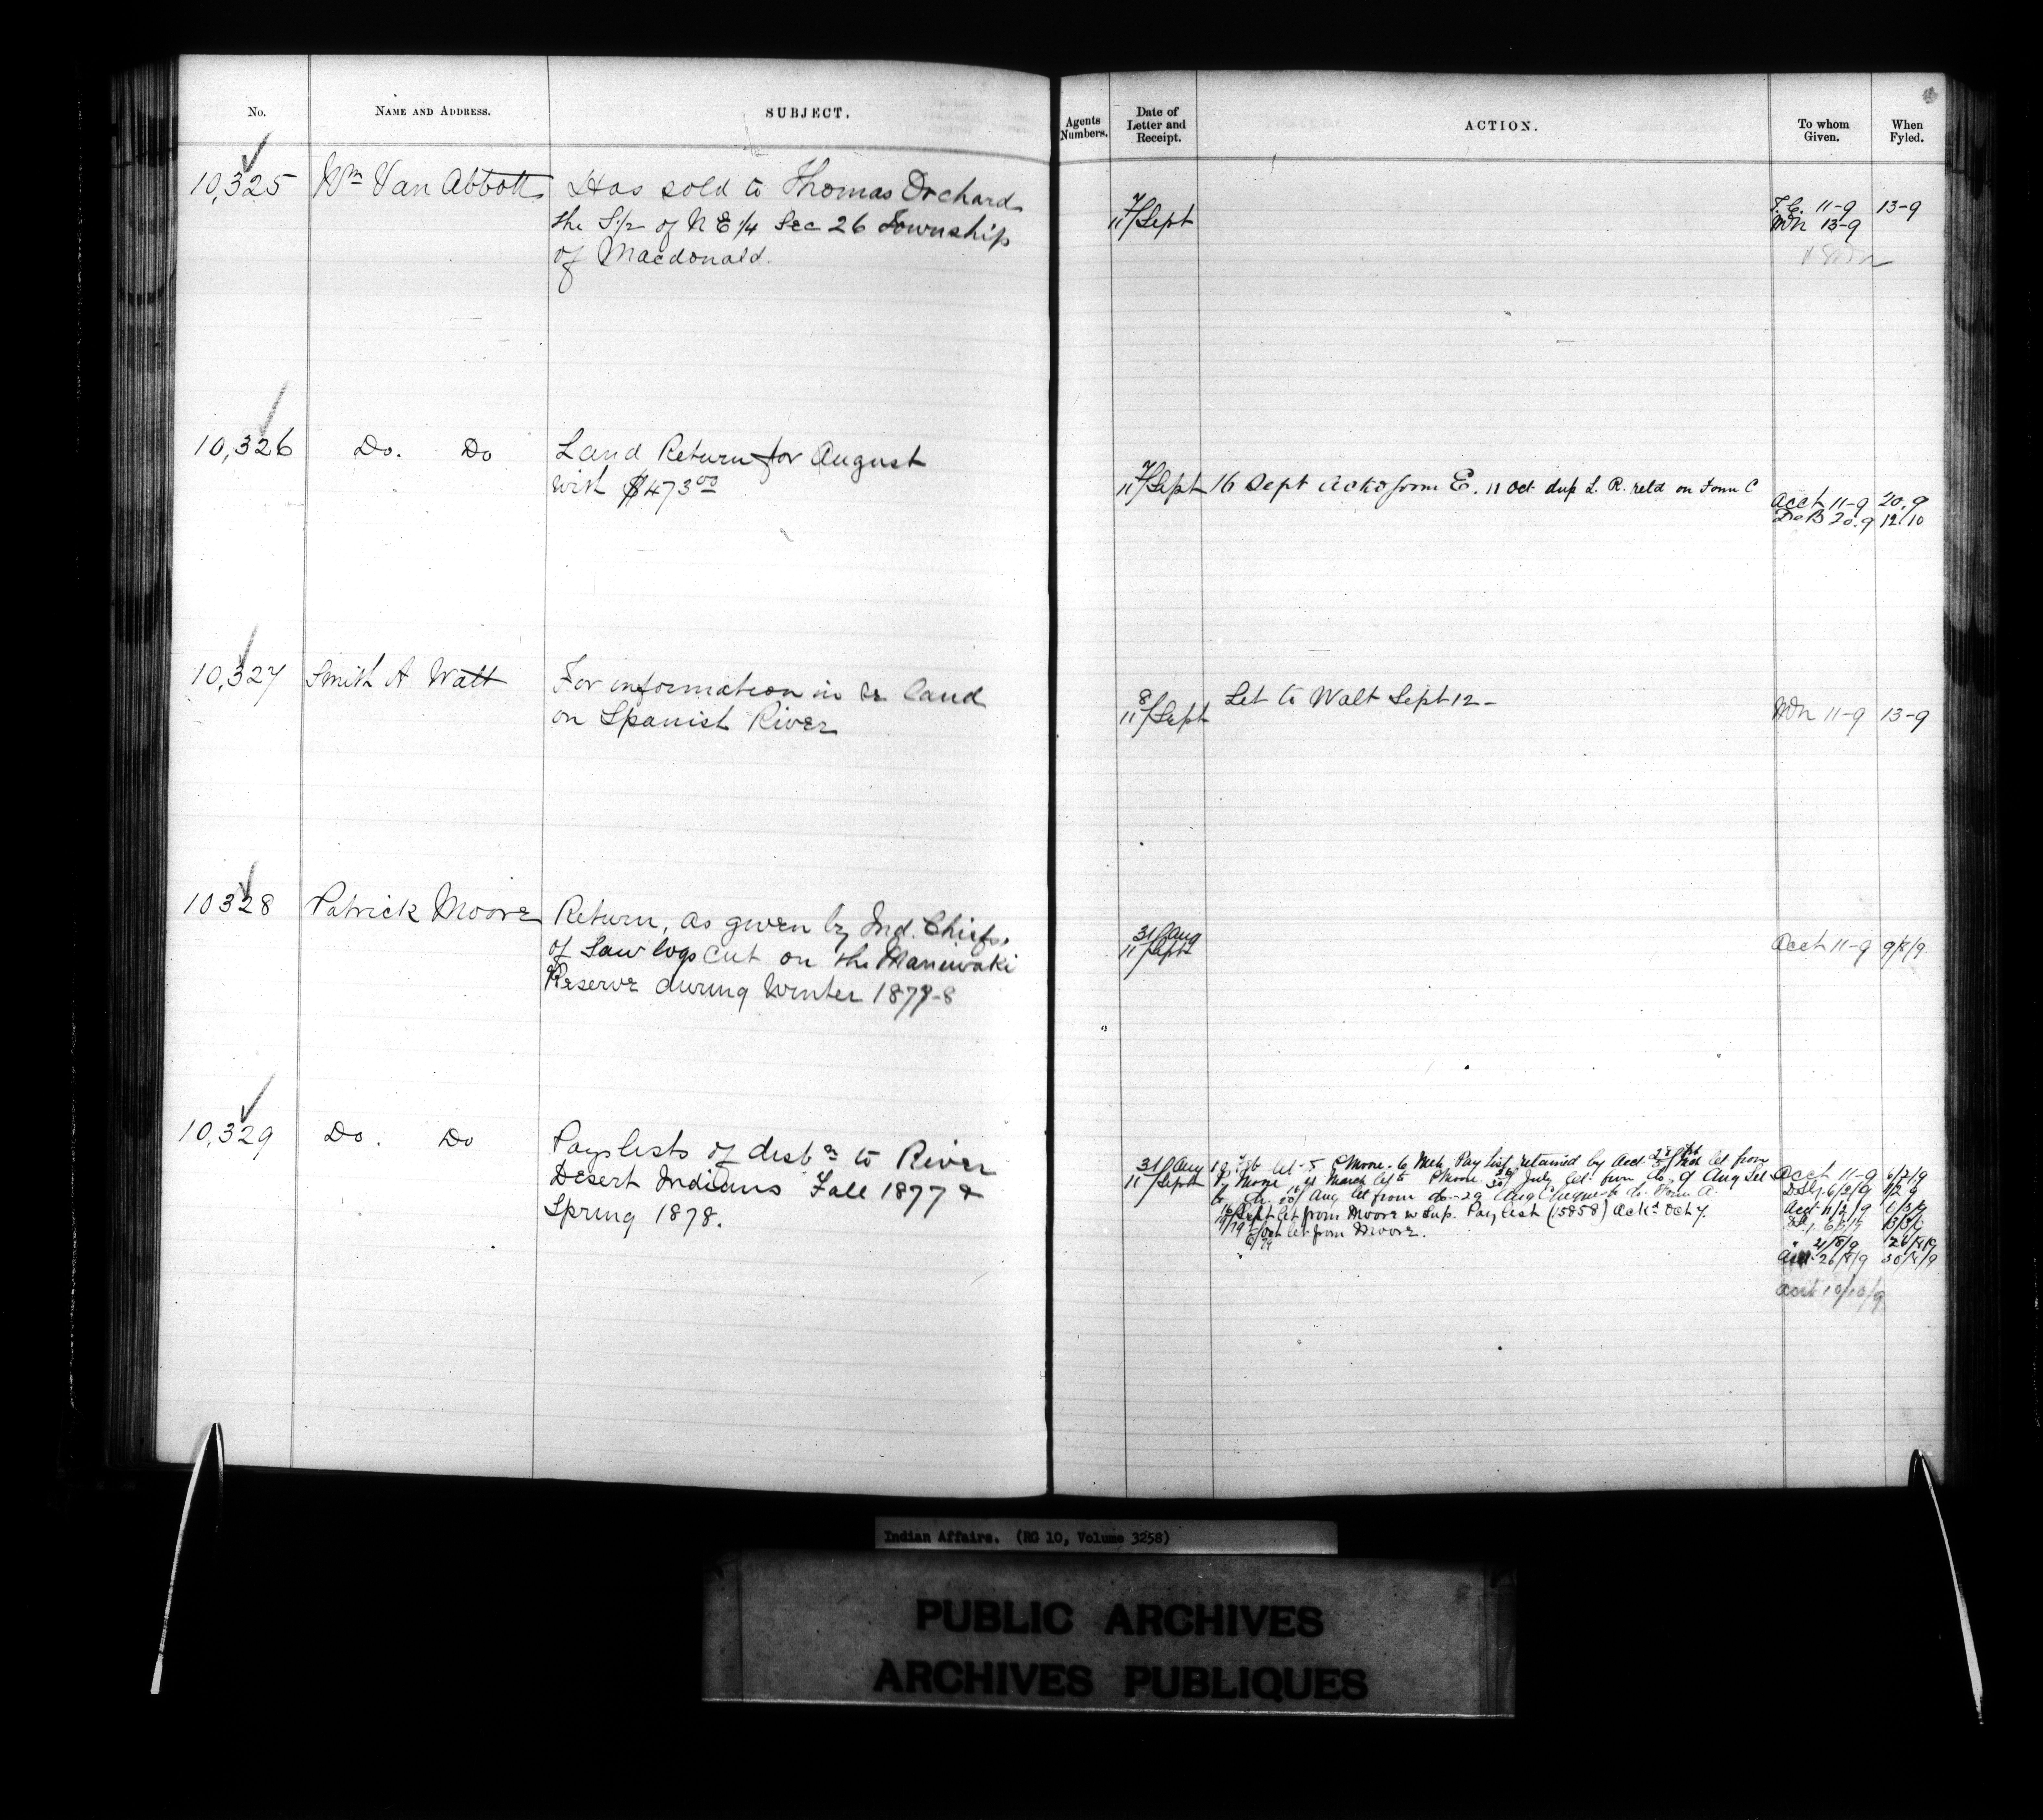 No.
NAME AND ADDRESS.
SUBJECT.
Agents Numbers.
Date of Letter and Receipt.
ACTION.
To whom Given.
When Fyled.
10,325 Wm Van Abbott Has sold to Thomas Orchard
the S 1/2 of N E 1/4 Sec 26 Township
of Macdonald.
7/11 Sept
T.C. 11-9 13-9
WN 13-9
10,326 Do. Do Land Return for August
with $473.00
7/11 Sept 16 Sept ackd form E. 11 Oct dup L. R. retd on Form C
Acct 11-9 20.9
20.9 12.10
10,327 Smith A Watt For information in re land
on Spanish River
8/11 Sept Let to Watt Sept 12-
11-9 13-9
10328 Patrick Moore Return, as given by Ind. Chiefs,
of Saw logs cut on the Maniwaki
Reserve during Winter 1877-8
31 Aug
11 Sept
Acct 11-9 9/8/9.
10,329 Do. Do Pay lists of distn to River
Desert Indians Fall 1877 &
Spring 1878.
31 Aug
11 Sept
Pay List retained by Acct let from
Moore March July let from do. 9 Aug Let
Aug let from do-29 Aug Cheque to do. Form A.
Sept let from Moore w Sup. Pay list (15858) Ackd Oct 7.
Oct let from Moore.
Acct 11-9 6/2/9
6/2/9
Acct 11/2/9 1/3/9
21/8/9 26/8/9
26/8/9 30/8/9
Acct 10/10/9
Indian Affairs. (RG 10, Volume 3258)
PUBLIC ARCHIVES
ARCHIVES PUBLIQUES